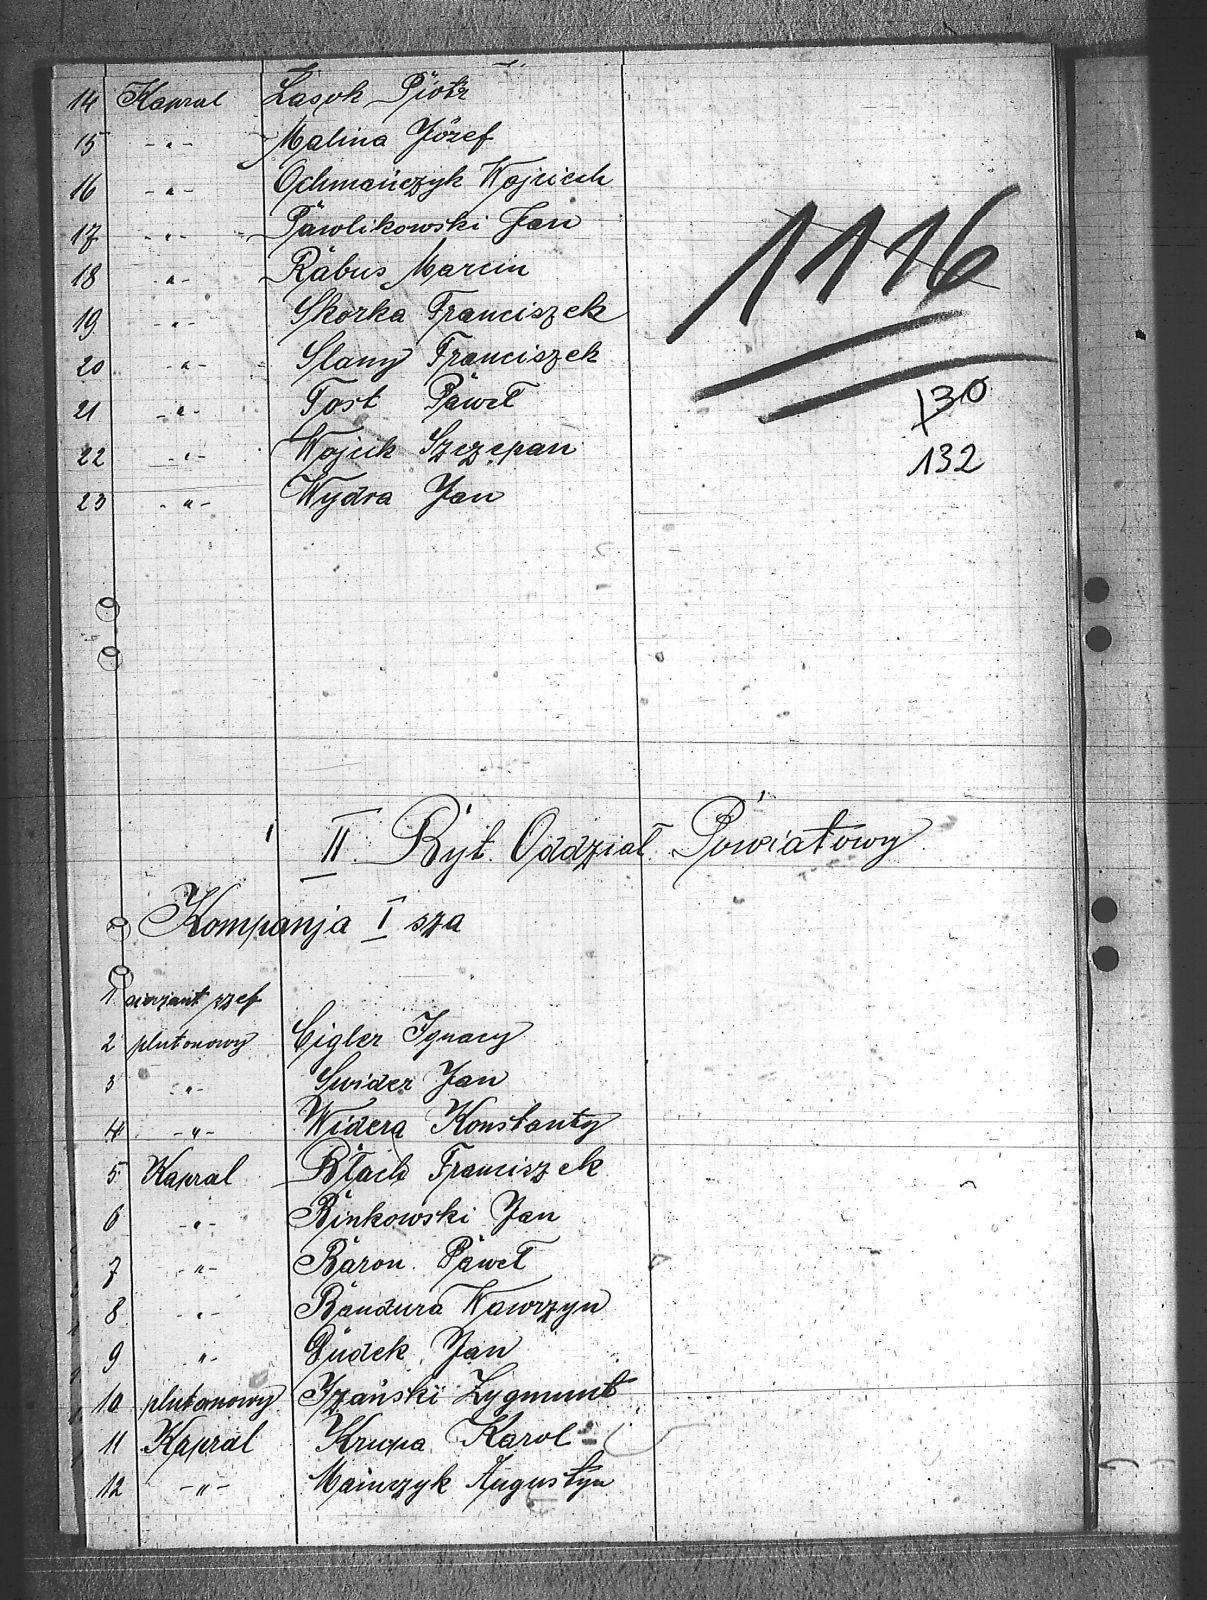 14 Kapral Lasok Piotr
15 -"- Malina Józef
16 -"- Ochmańczyk Wojciech
17 -"- Pawlikowski Jan
18 -"- Rabus Marcin
19 -"- Skorka Franciszek
20 -"- Slany Franciszek
21 -"- Tost Paweł
22 -"- Wojcik Szczepan
23 -"- Wydra Jan
1116
130
132
II Byt. Oddział Powiatowy
Kompanja I sza
1 sierżant szef
2 plutonowy Cigler Ignacy
3 -"- Swider Jan
4 -"- Widera Konstanty
5 Kapral Błach Franciszek
6 -"- Binkowski Jan
7 -"- Baron Paweł
8 -"- Bandura Wawrzyn
9 -"- Dudek Jan
10 plutonowy Zygmunt
11 Kapral Krupa Karol
12 -"- Mainczyk Augustyn